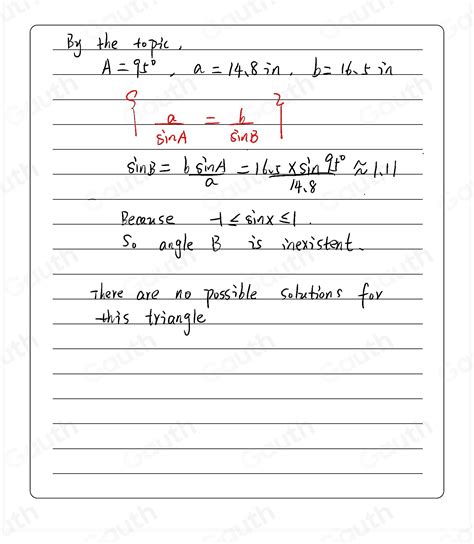 By the topic,
A = 95°, a = 14.8 in, b = 16.5 in
{ a/sinA = b/sinB }
sinB = b sinA / a = 16.5 × sin 95° / 14.8 ≈ 1.11
Because -1 ≤ sinx ≤ 1.
So angle B is inexistent.
There are no possible solutions for
this triangle
Gauth